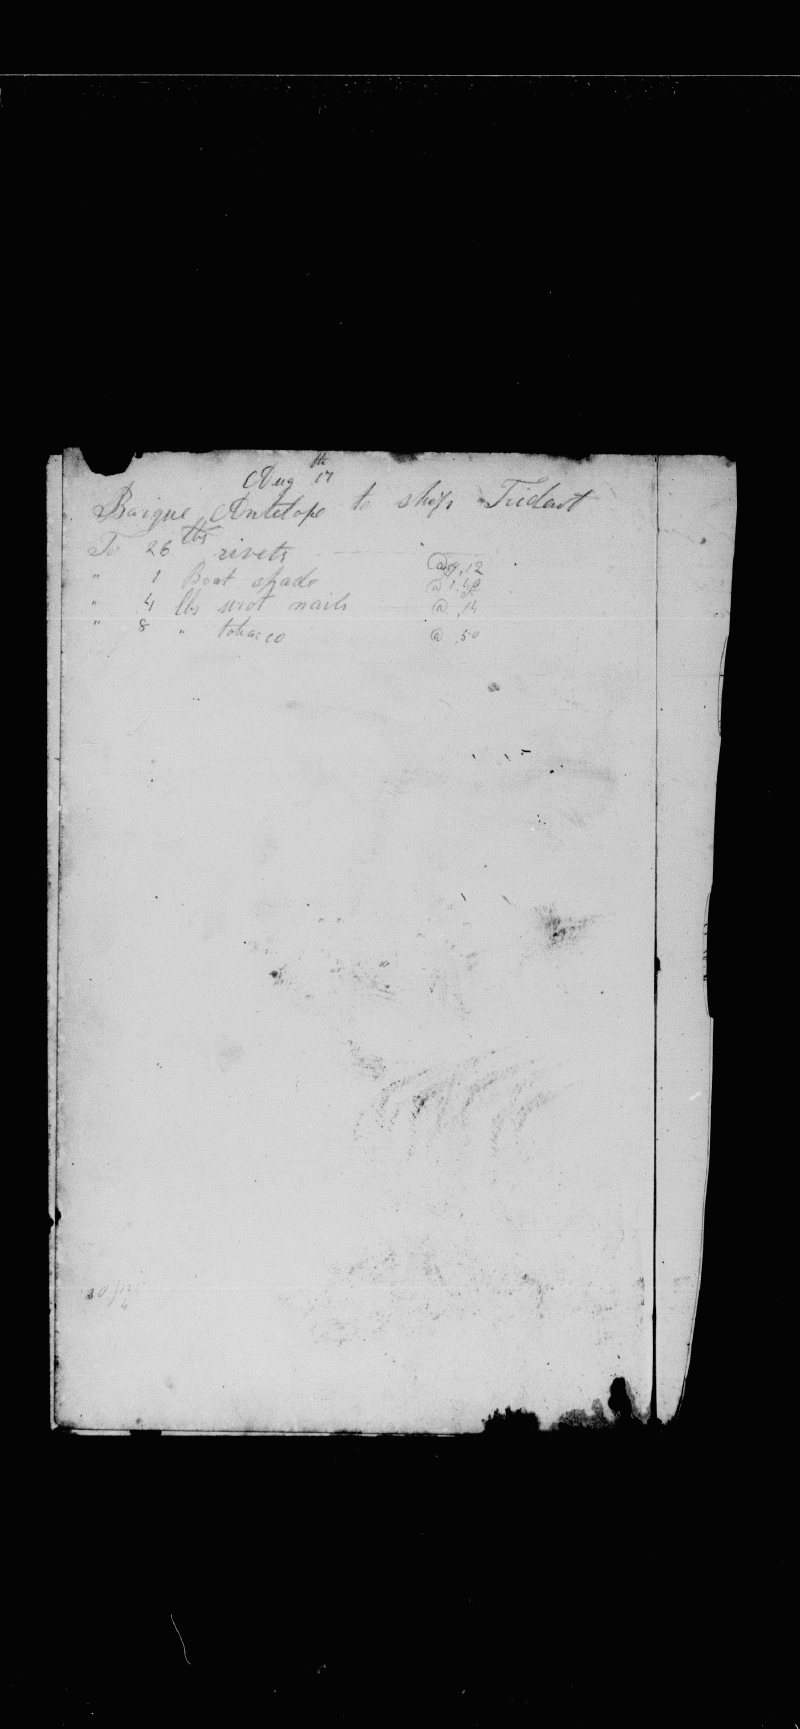 Aug 17th
Barque Antelope to ship Trident
To 26 lbs rivets @ $ .12
" 1 Boat spade @ 1.40
" 4 lbs wrot nails @ .14
" 8 " tobacco @ .50